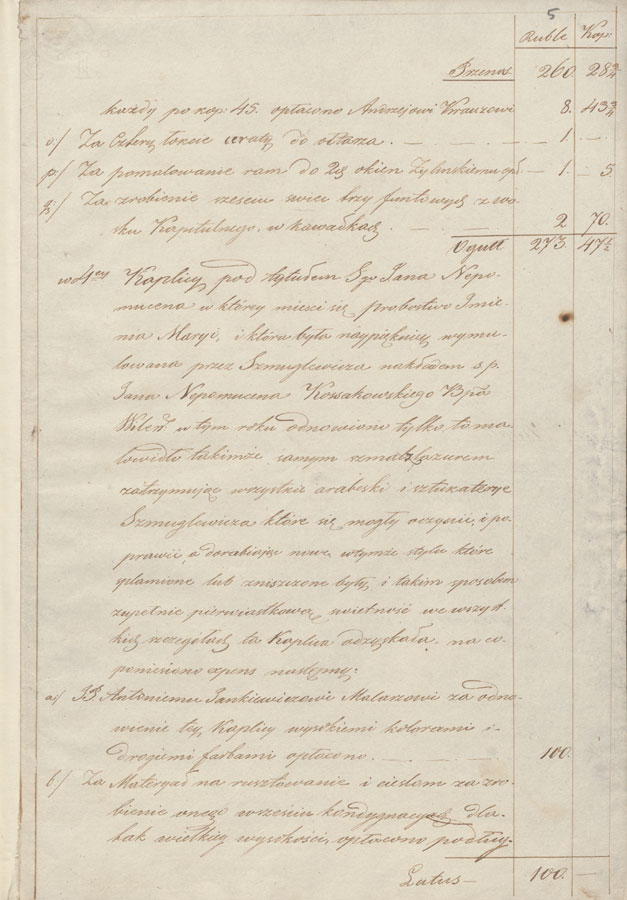 5
Ruble Kop:
Przenos 260. 28 3/4
każdy po kop: 45. opłacono Andrzejowi Krauzewi 8. 43 3/4
o/ Za Cztery łokcie ceraty do ołtarza. — 1. —
p/ Za pomalowanie ram do 2ch okien Żylinskiemu opł — 1. 5
q/ Za zrobienie sześciu swiec trzy funtowych z wo-
sku Kapitulnego, w kawałkach — 2 70.
Ogułł 273. 47 1/2
w 4ey Kaplicy pod tytułem Sgo Jana Nepo-
mucena w którey miesci się probostwo Imie-
nia Maryi, i która była naypiękniey wyma-
lowana przez Szmuglewicza nakładem s. p.
Jana Nepomucena Kossakowskiego Bpa
Wileń. w tym roku odnowiono tylko, to ma-
lowidło takimże samym szmalclazurem
zatrzymując wszystkie arabeski i sztukaterye
Szmuglewicza które się mogły oczyscić, i po-
prawić, a dorabiając nowe, w tymże stylu które
splamione lub zniszczone były, i takim sposobem
zupełnie pierwiastkową swietność we wszyst-
kich szczegółach ta Kaplica odzyskała, na co
poniesiono expens następny:
a/ JP. Antoniemu Jankiewiczowi Malarzowi za odno-
wienie tey Kaplicy wysokiemi kolorami i
drogiemi farbami opłacono — 100.
b/ Za Materyał na rusztowanie i cieslom za zro-
bienie onego w sześciu kondygnacyach dla
tak wielkiey wysokości, opłacono podług
Latus — 100. —